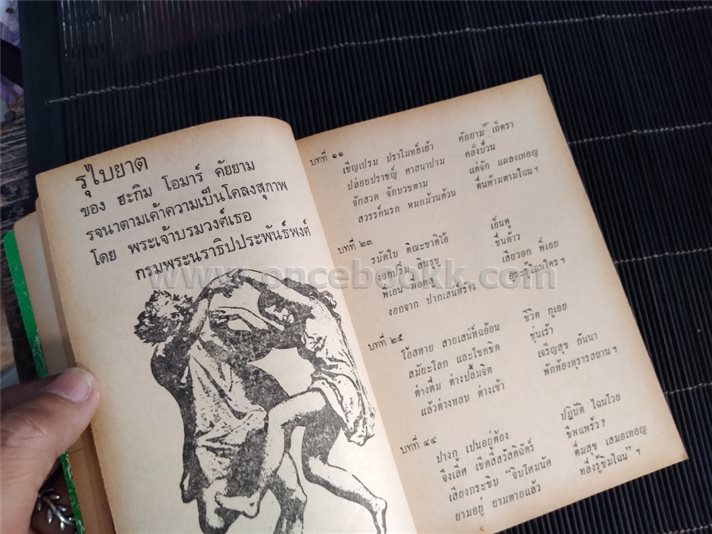 รุไบยาต
ของ ฮะกิม โอมาร์ คัยยาม
รจนาตามเค้าความเป็นโคลงสุภาพ
โดย พระเจ้าบรมวงศ์เธอ
กรมพระนราธิปประพันธ์พงศ์
www.oncebookk.com
บทที่ ๑๑
เชิญเปรม ปราโมทย์เย้า คัยยาม
ปล่อยปราชญ์ ศาสนาปาม คลั่งป่วน
จักสวด จักบวชตาม แต่จัก แผลงเทอญ
สวรรค์นรก หมกม่วนด้วน ตื่นห้ามตามไฉน ฯ
บทที่ ๒๓
รบัดใบ เอ็นดู
งอกริม ชื่นด้าว
เสียวอก พี่เอย
งอกจาก ปากเสน่ห์ร้าง
บทที่ ๒๕
โอ้สหาย สายเสน่ห์ฉอ้อน ชีวิต กูเอย
สมัยะโลก และโชคชิด ขุ่นเร้า
ต่างดื่ม ต่างปลื้มจิต เจริญสุข กันนา
แล้วต่างหลบ ต่างเข้า พักห้องหุรารสถาน ฯ
บทที่ ๔๔
ปางกู เปนอยู่ต้อง ปฏิบัติ ไฉนโวย
จึงเลิศ เชิดสี้สวัสดิ์ฉัตร์ ชีพแพร้ว ?
เสียงกระซิบ “จิบโศมนัศ ดื่มสุข เสมอเทอญ
ยามอยู่ ยามตายแล้ว